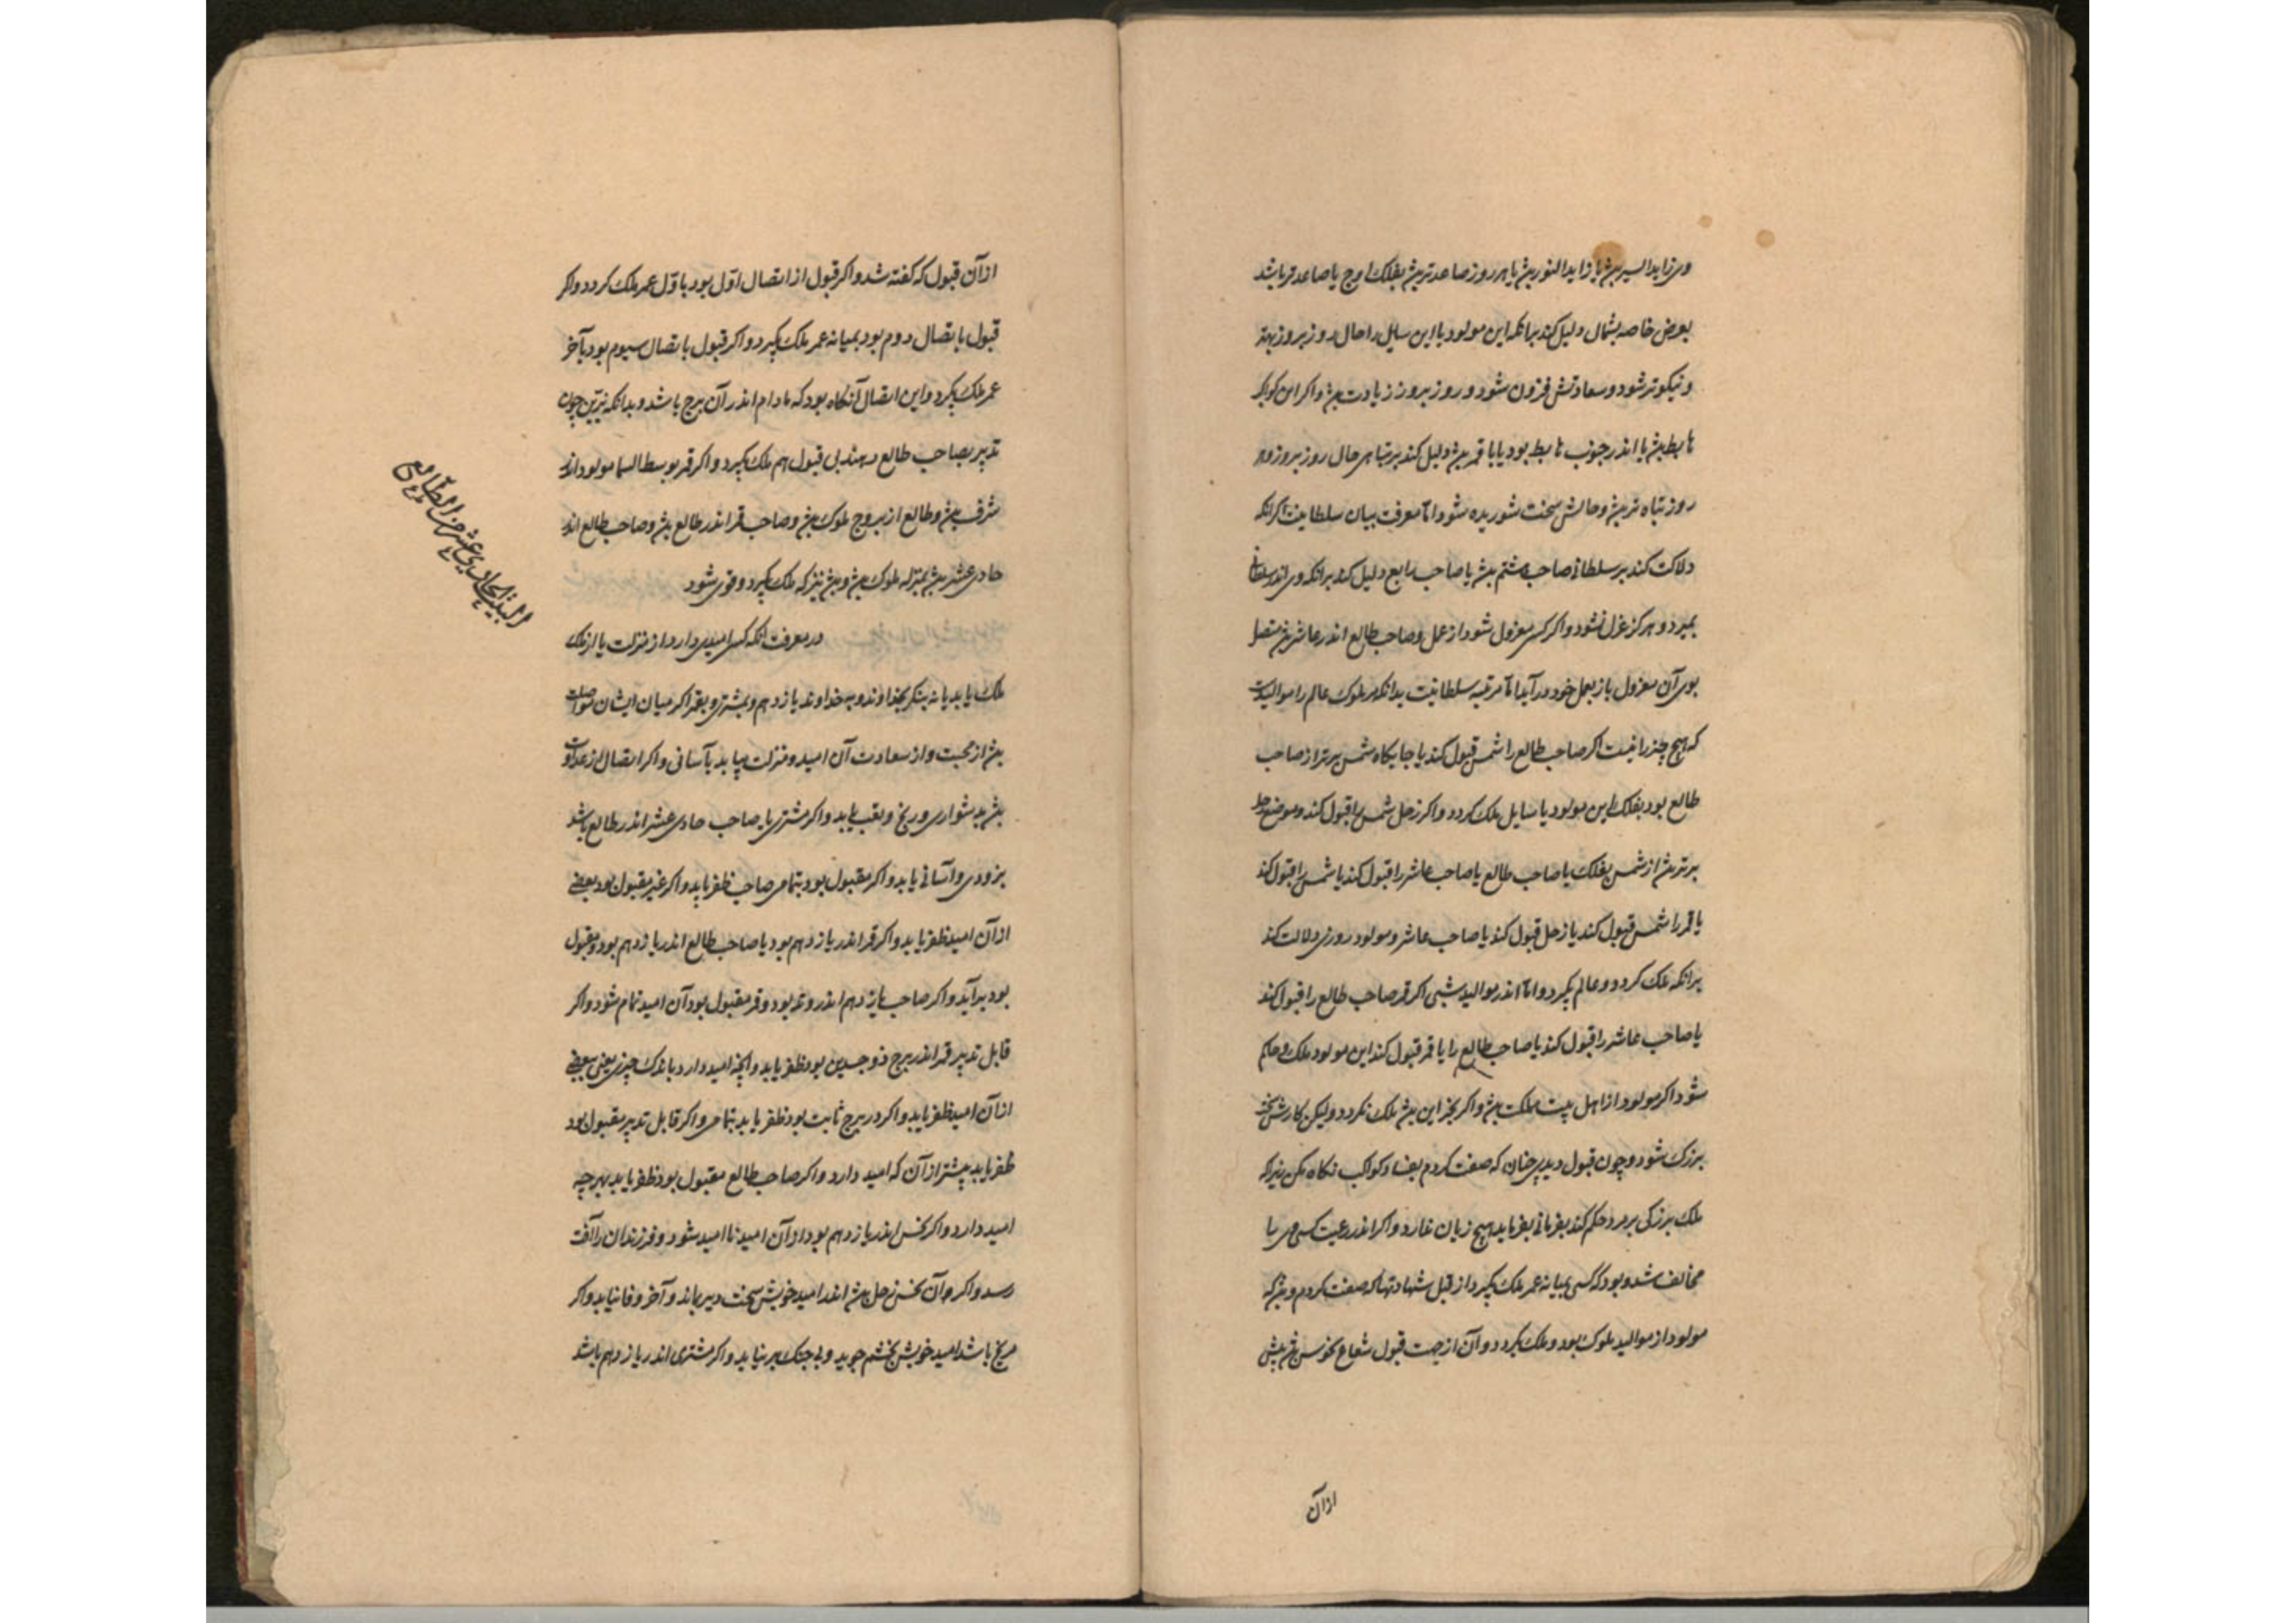 وی زاید السیر بش یا زاید النور بش یا هر روز صاعدتر بش بفلک اوج یا صاعدتر باشد
بعرض خاصه بشمال دلیل کند برانکه این مولود یا این سایل را حال روز بروز بهتر
و نیکوتر شود و سعادتش فزون شود و روز بروز زیادت بش و اکر این کوکب
هابط بش یا اندر جنوب هابط بود یا با قمر بش دلیل کند بر تباهی حال روز بروز و هر
روز تباه تر بش و حالش سخت شوریده شود اما معرفت بیان سلطانیت اکر انکه
دلالت کند بر سلطانی صاحب هشتم بش یا صاحب رابع دلیل کند برانکه وی اندر سلطانی
بمیرد و هرکز عزل نشود و اکر کسی معزول شود از عمل و صاحب طالع اندر عاشر بش متصل
بوی آن معزول باز بعمل خود درآید اما مرتبه سلطانیت بدانکه ملوک عالم را موالیدست
که هیچ چیز را نیست اکر صاحب طالع را شمس قبول کند یا جایکاه شمس برتر از صاحب
طالع بود بفلک این مولود یا سایل ملک کردد و اکر زحل شمس را قبول کند و موضع زحل
برتر بش از شمس بفلک یا صاحب طالع یا صاحب عاشر را قبول کند یا شمس را قبول کند
یا قمر را شمس قبول کند یا زحل قبول کند یا صاحب عاشر و مولود روزی دلالت کند
برانکه ملک کردد و عالم بکیرد و اما اندر موالید شبی اکر قمر صاحب طالع را قبول کند
یا صاحب عاشر را قبول کند یا صاحب طالع را یا قمر قبول کند این مولود ملک و حاکم
شود اکر مولود از اهل بیت مملکت بش و اکر بجز این بش ملک نکردد ولیکن کارش سخت
بزرک شود و چون قبول دیدی چنان که صفت کردم بفساد کواکب نکاه مکن زیرا که
ملک بزرکی بر مرد حکم کند بفرمانی بفرماید هیچ زیان ندارد و اکر اندر رعیت کسی مر
مخالف شد و بود که کسی بمیانه عمر ملک بکیرد از قبل شهادتها که صفت کردم و نیز که
مولود از موالید ملوک بود و ملک کیرد و آن از جهت قبول شعاع نحوس بش پیش
از آن
از آن قبول که کفته شد و اکر قبول از اتصال اول بود باول عمر ملک کردد و اکر
قبول باتصال دوم بود بمیانه عمر ملک بکیرد و اکر قبول باتصال سیوم بود بآخر
عمر ملک بکیرد و این اتصال آنکاه بود که مادام اندر آن برج باشد و بدانکه نیرین چون
تدبیر بصاحب طالع دهند بی قبول هم ملک بکیرد و اکر قمر بوسط السما مولود اندر
شرف بش و طالع از بروج ملوک بش و صاحب قمر اندر طالع بش و صاحب طالع اندر
حادی عشر بش بمنزله ملوک بش و بش نیز که ملک بکیرد و قوی شود
البیت الحادی عشر من الطالع
در معرفت انکه کسی امیدی دارد از منزلت یا از ملک
ملک یابد یا نه بنکر بخداوند و به خداوند یازدهم و بمشتری و بقمر اکر میان ایشان مواصلت
بش از محبت و از سعادت آن امید و منزلت بیابد بآسانی و اکر اتصال از عداوت
بش بدشواری و رنج و تعب یابد و اکر مشتری یا صاحب حادی عشر اندر طالع باشد
بزودی و آسانی یابد و اکر مقبول بود بتمامی صاحب ظفر یابد و اکر غیر مقبول بود ببعضی
از آن امید ظفر یابد و اکر قمر اندر یازدهم بود یا صاحب طالع اندر یازدهم بود و مقبول
بود برآید و اکر صاحب یازدهم اندر وتد بود و قمر مقبول بود آن امید تمام شود و اکر
قابل تدبیر قمر اندر برج ذو جسدین بود ظفر یابد و آنچه امید دارد باندک چیزی یعنی ببعضی
از آن امید ظفر یابد و اکر در برج ثابت بود ظفر یابد بتمامی و اکر قابل تدبیر مقبول بود
ظفر یابد بیشتر از آن که امید دارد و اکر صاحب طالع مقبول بود ظفر یابد بهر چه
امید دارد و اکر نحس اندر یازدهم بود از آن امید ناامید شود و فرزندان را آفت
رسد و اکر آن نحس زحل بش اندر امید خویش سخت دیر بماند و آخر وفا نیابد و اکر
مریخ باشد امید خویش بخشم جوید و بی جنک بر نیاید و اکر مشتری اندر یازدهم باشد